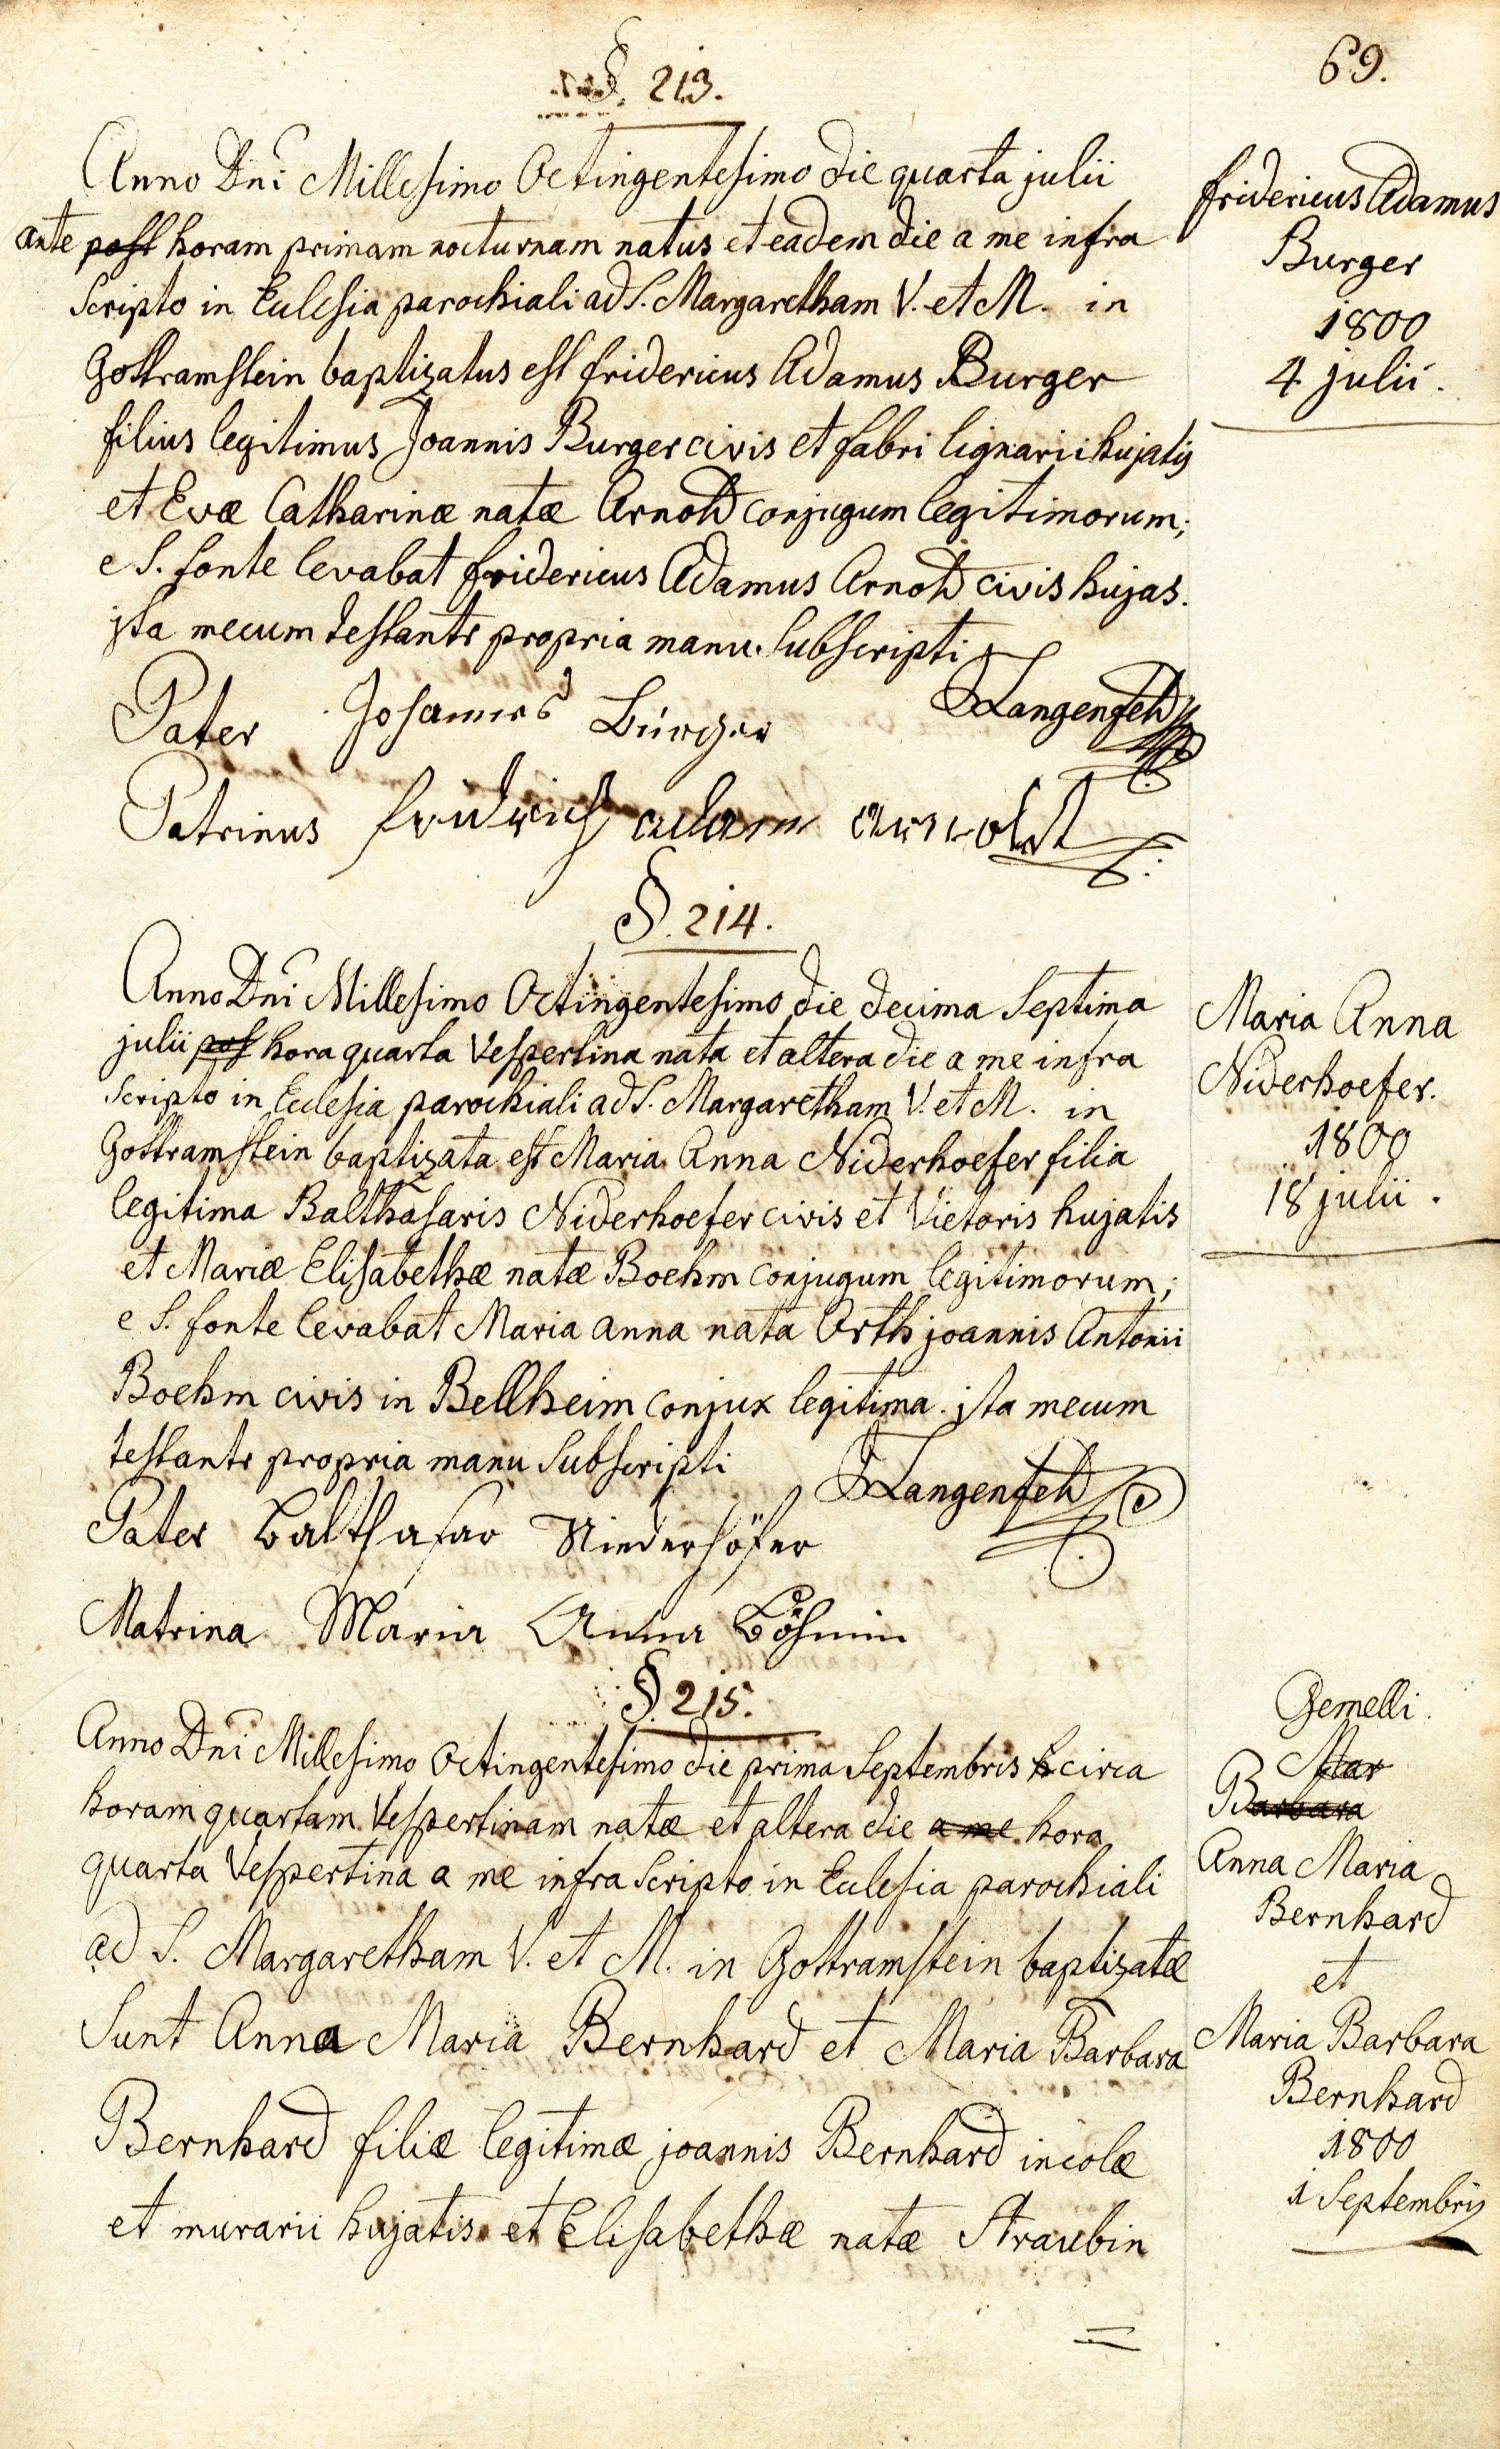 69.
§. 213.
Anno Dni Millesimo Octingentesimo die quarta julii
ante post horam primam nocturnam natus et eadem die a me infra
scripto in Eclesia parochiali ad S. Margaretham V. et M. in
Gottramstein baptizatus est fridericus Adamus Burger
filius legitimus Joannis Burger civis et fabri lignarii hujatis
et Evæ Catharinæ natæ Arnold conjugum legitimorum;
e S. fonte levabat fridericus Adamus Arnold civis hujas.
jta mecum testante propria manu subscripti
FLangenfeld
Pater Johannes Bürger
Patrinus fridrich adam arnoldt
fridericus Adamus
Burger
1800
4 julii.
§. 214.
Anno Dni Millesimo Octingentesimo die decima septima
julii pos hora quarta Vespertina nata et altera die a me infra
scripto in Eclesia parochiali ad S. Margaretham V. et M. in
Gottramstein baptizata est Maria Anna Niderhoefer filia
legitima Balthasaris Niderhoefer civis et Vietoris hujatis
et Mariæ Elisabethæ natæ Boehm conjugum legitimorum;
e S. fonte levabat Maria anna nata Orth joannis Antonii
Boehm civis in Bellheim conjux legitima. jta mecum
testante propria manu subscripti
FLangenfeld
Pater Balthasar Niederhöfer
Matrina Maria Anna Böhmin
Maria Anna
Niderhoefer.
1800
18 julii.
§. 215.
Anno Dni Millesimo Octingentesimo die prima Septembris h circa
horam quartam Vespertinam natæ et altera die a me hora
quarta Vespertina a me infra scripto in Eclesia parochiali
ad S. Margaretham V. et M. in Gottramstein baptizatæ
sunt Anna Maria Bernhard et Maria Barbara
Bernhard filiæ legitimæ joannis Bernhard incolæ
et murarii hujatis et Elisabethæ natæ Straubin
Gemelli.
Mar
Barbara
Anna Maria
Bernhard
et
Maria Barbara
Bernhard
1800
1 Septembris